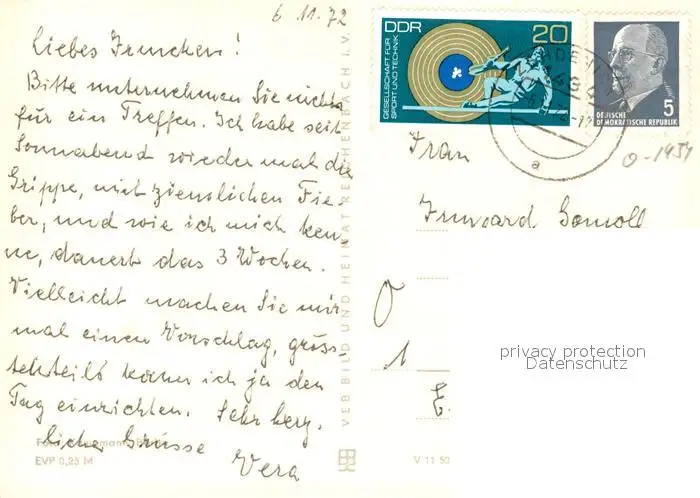 6 11.72
Liebes Irmchen!
Bitte unternehmen Sie nichts
für ein Treffen. Ich habe seit
Sonnabend wieder mal die
Grippe, mit ziemlichen Fie-
ber, und wie ich mich ken-
ne, dauert das 3 Wochen.
Vielleicht machen Sie mir
mal einen Vorschlag, gröss-
tenteils kann ich ja den
Tag einrichten. Sehr herz-
liche Grüsse
Vera
EVP 0,25 M
VEB BILD UND HEIMAT REICHENBACH i. V.
V 11 50
DDR 20
GESELLSCHAFT FÜR
SPORT UND TECHNIK
5
DEUTSCHE
DEMOKRATISCHE REPUBLIK
a
Frau
Irmgard Gomoll
O
1
E.
privacy protection
Datenschutz